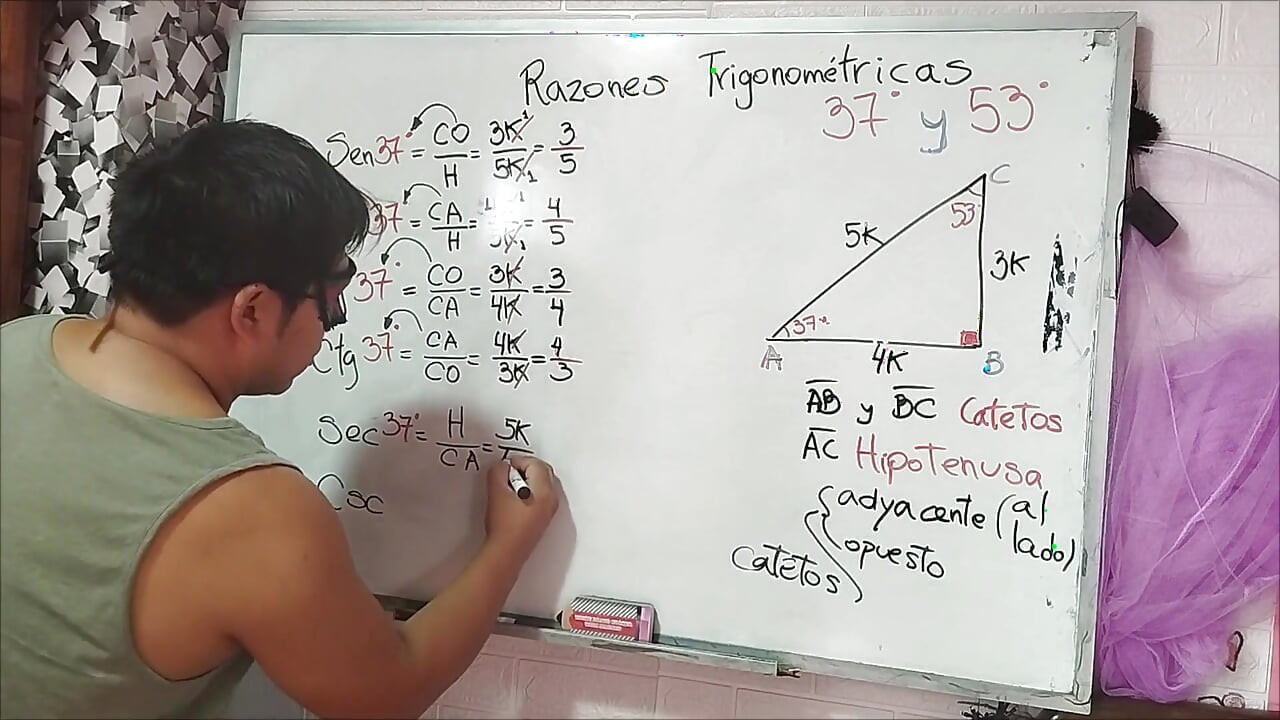 Razones Trigonométricas
37° y 53°
Sen 37° = CO/H = 3K/5K = 3/5
37° = CA/H = 5K = 4/5
37° = CO/CA = 3K/4K = 3/4
Ctg 37° = CA/CO = 4K/3K = 4/3
Sec 37° = H/CA = 5K
Csc
C
53°
5K
3K
37°
A
4K
B
AB y BC Catetos
AC Hipotenusa
Catetos
adyacente (al lado)
opuesto